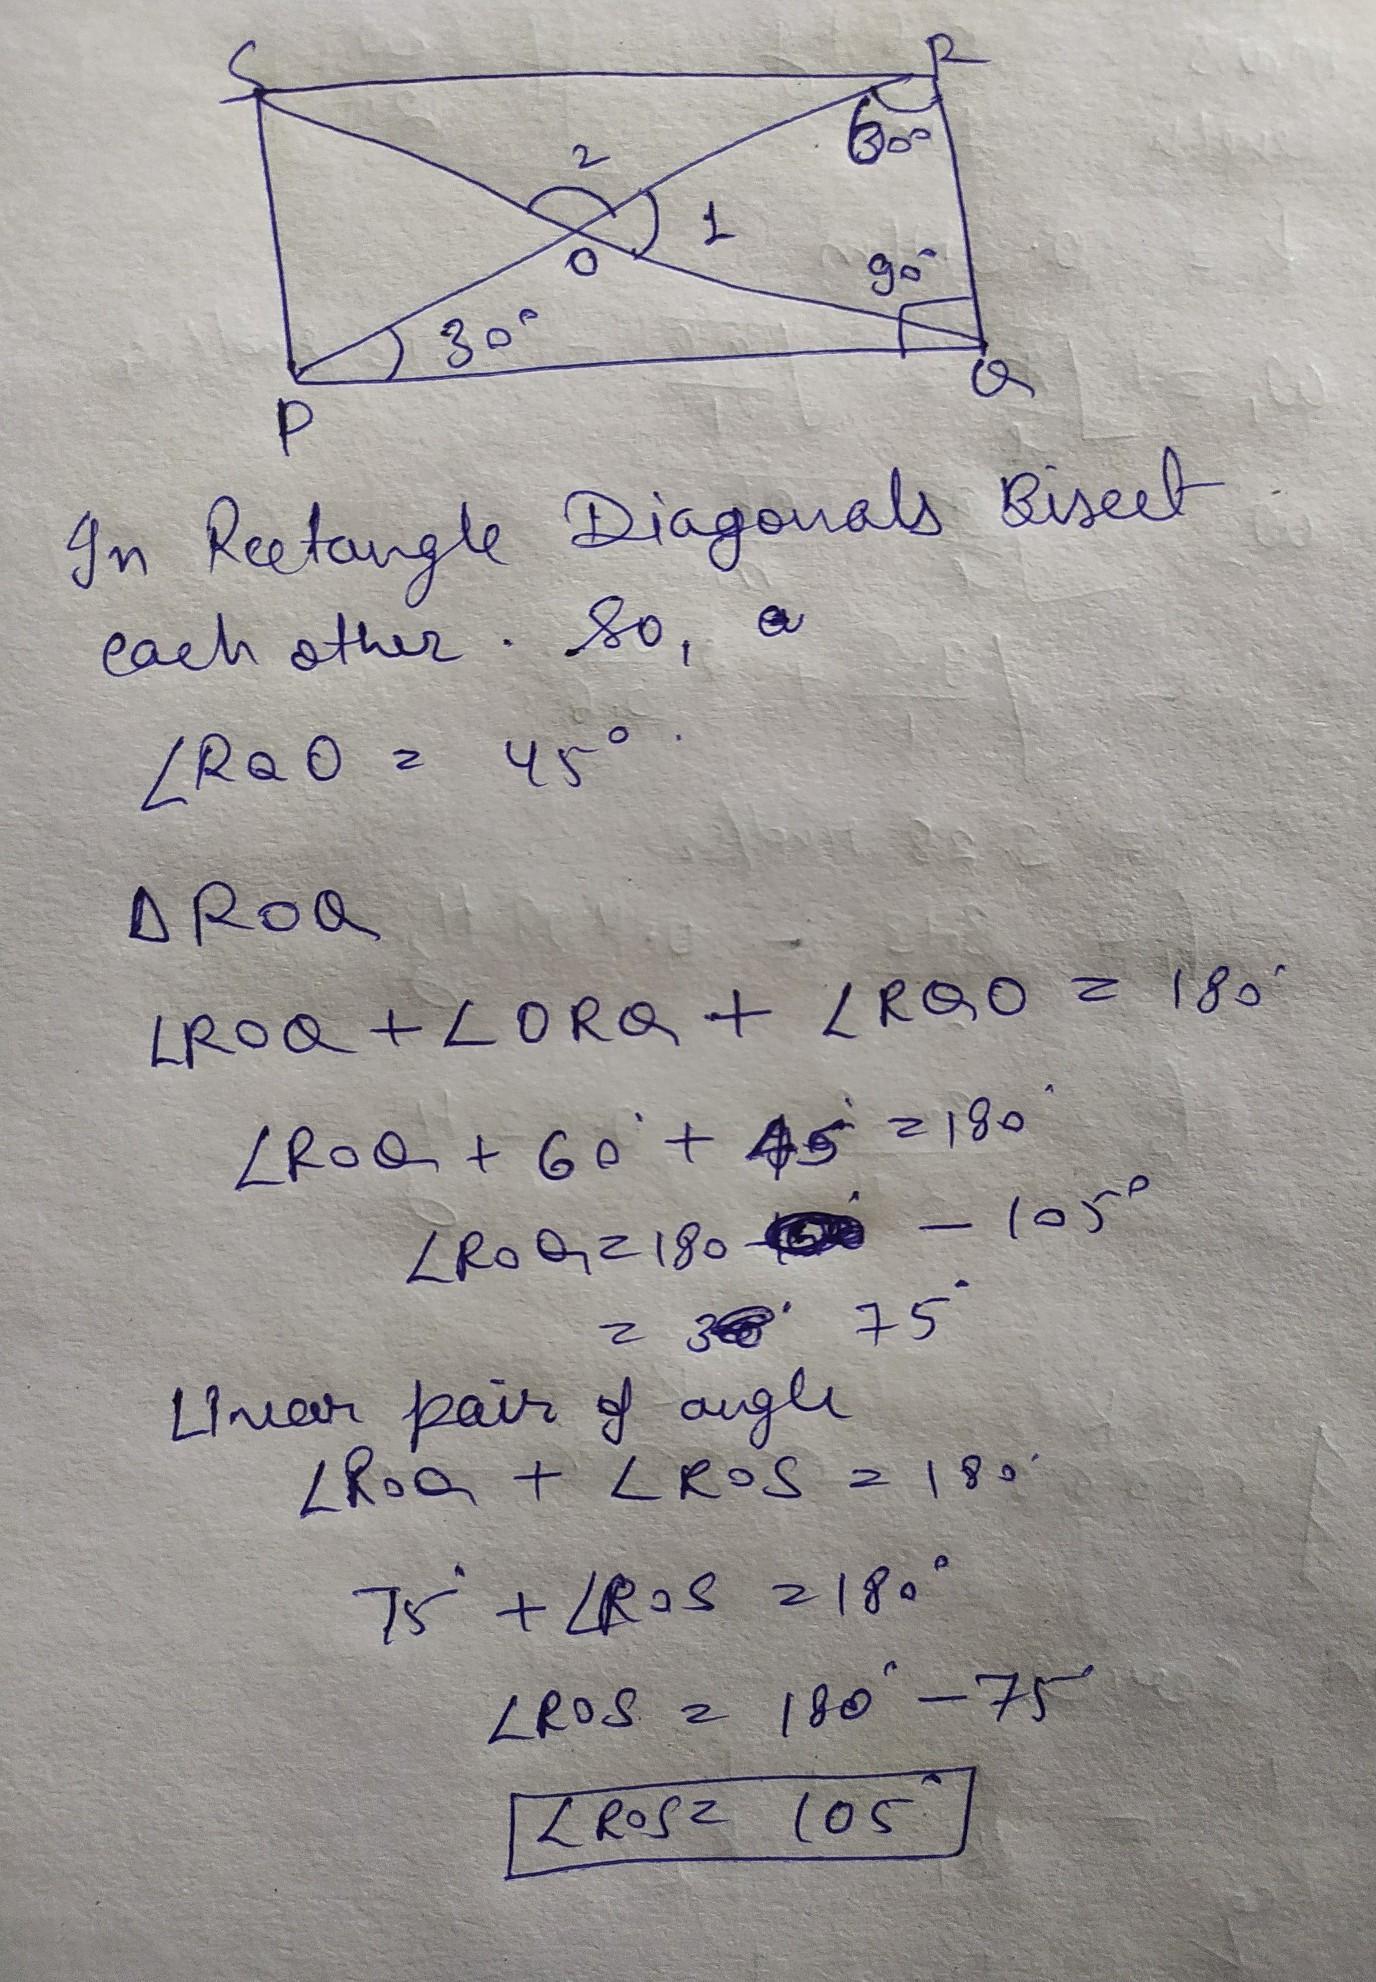 S R
2
60°
1
90°
O
30°
P Q
In Rectangle Diagonals Bisect
each other. So,
∠RQO = 45°.
Δ ROQ
∠ROQ + ∠ORQ + ∠RQO = 180°
∠ROQ + 60° + 45° = 180°
∠ROQ = 180 - 105°
= 75°
Linear pair of angle
∠ROQ + ∠ROS = 180°
75° + ∠ROS = 180°
∠ROS = 180° - 75
∠ROS = 105°